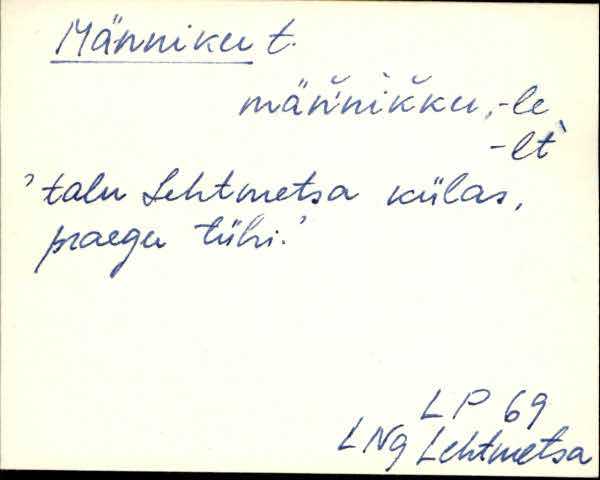 Männiku t.
män̆nik̆ku, -le
-lt`
'talu Lehtmetsa külas,
praegu tühi.'
LP 69
LNg Lehtmetsa